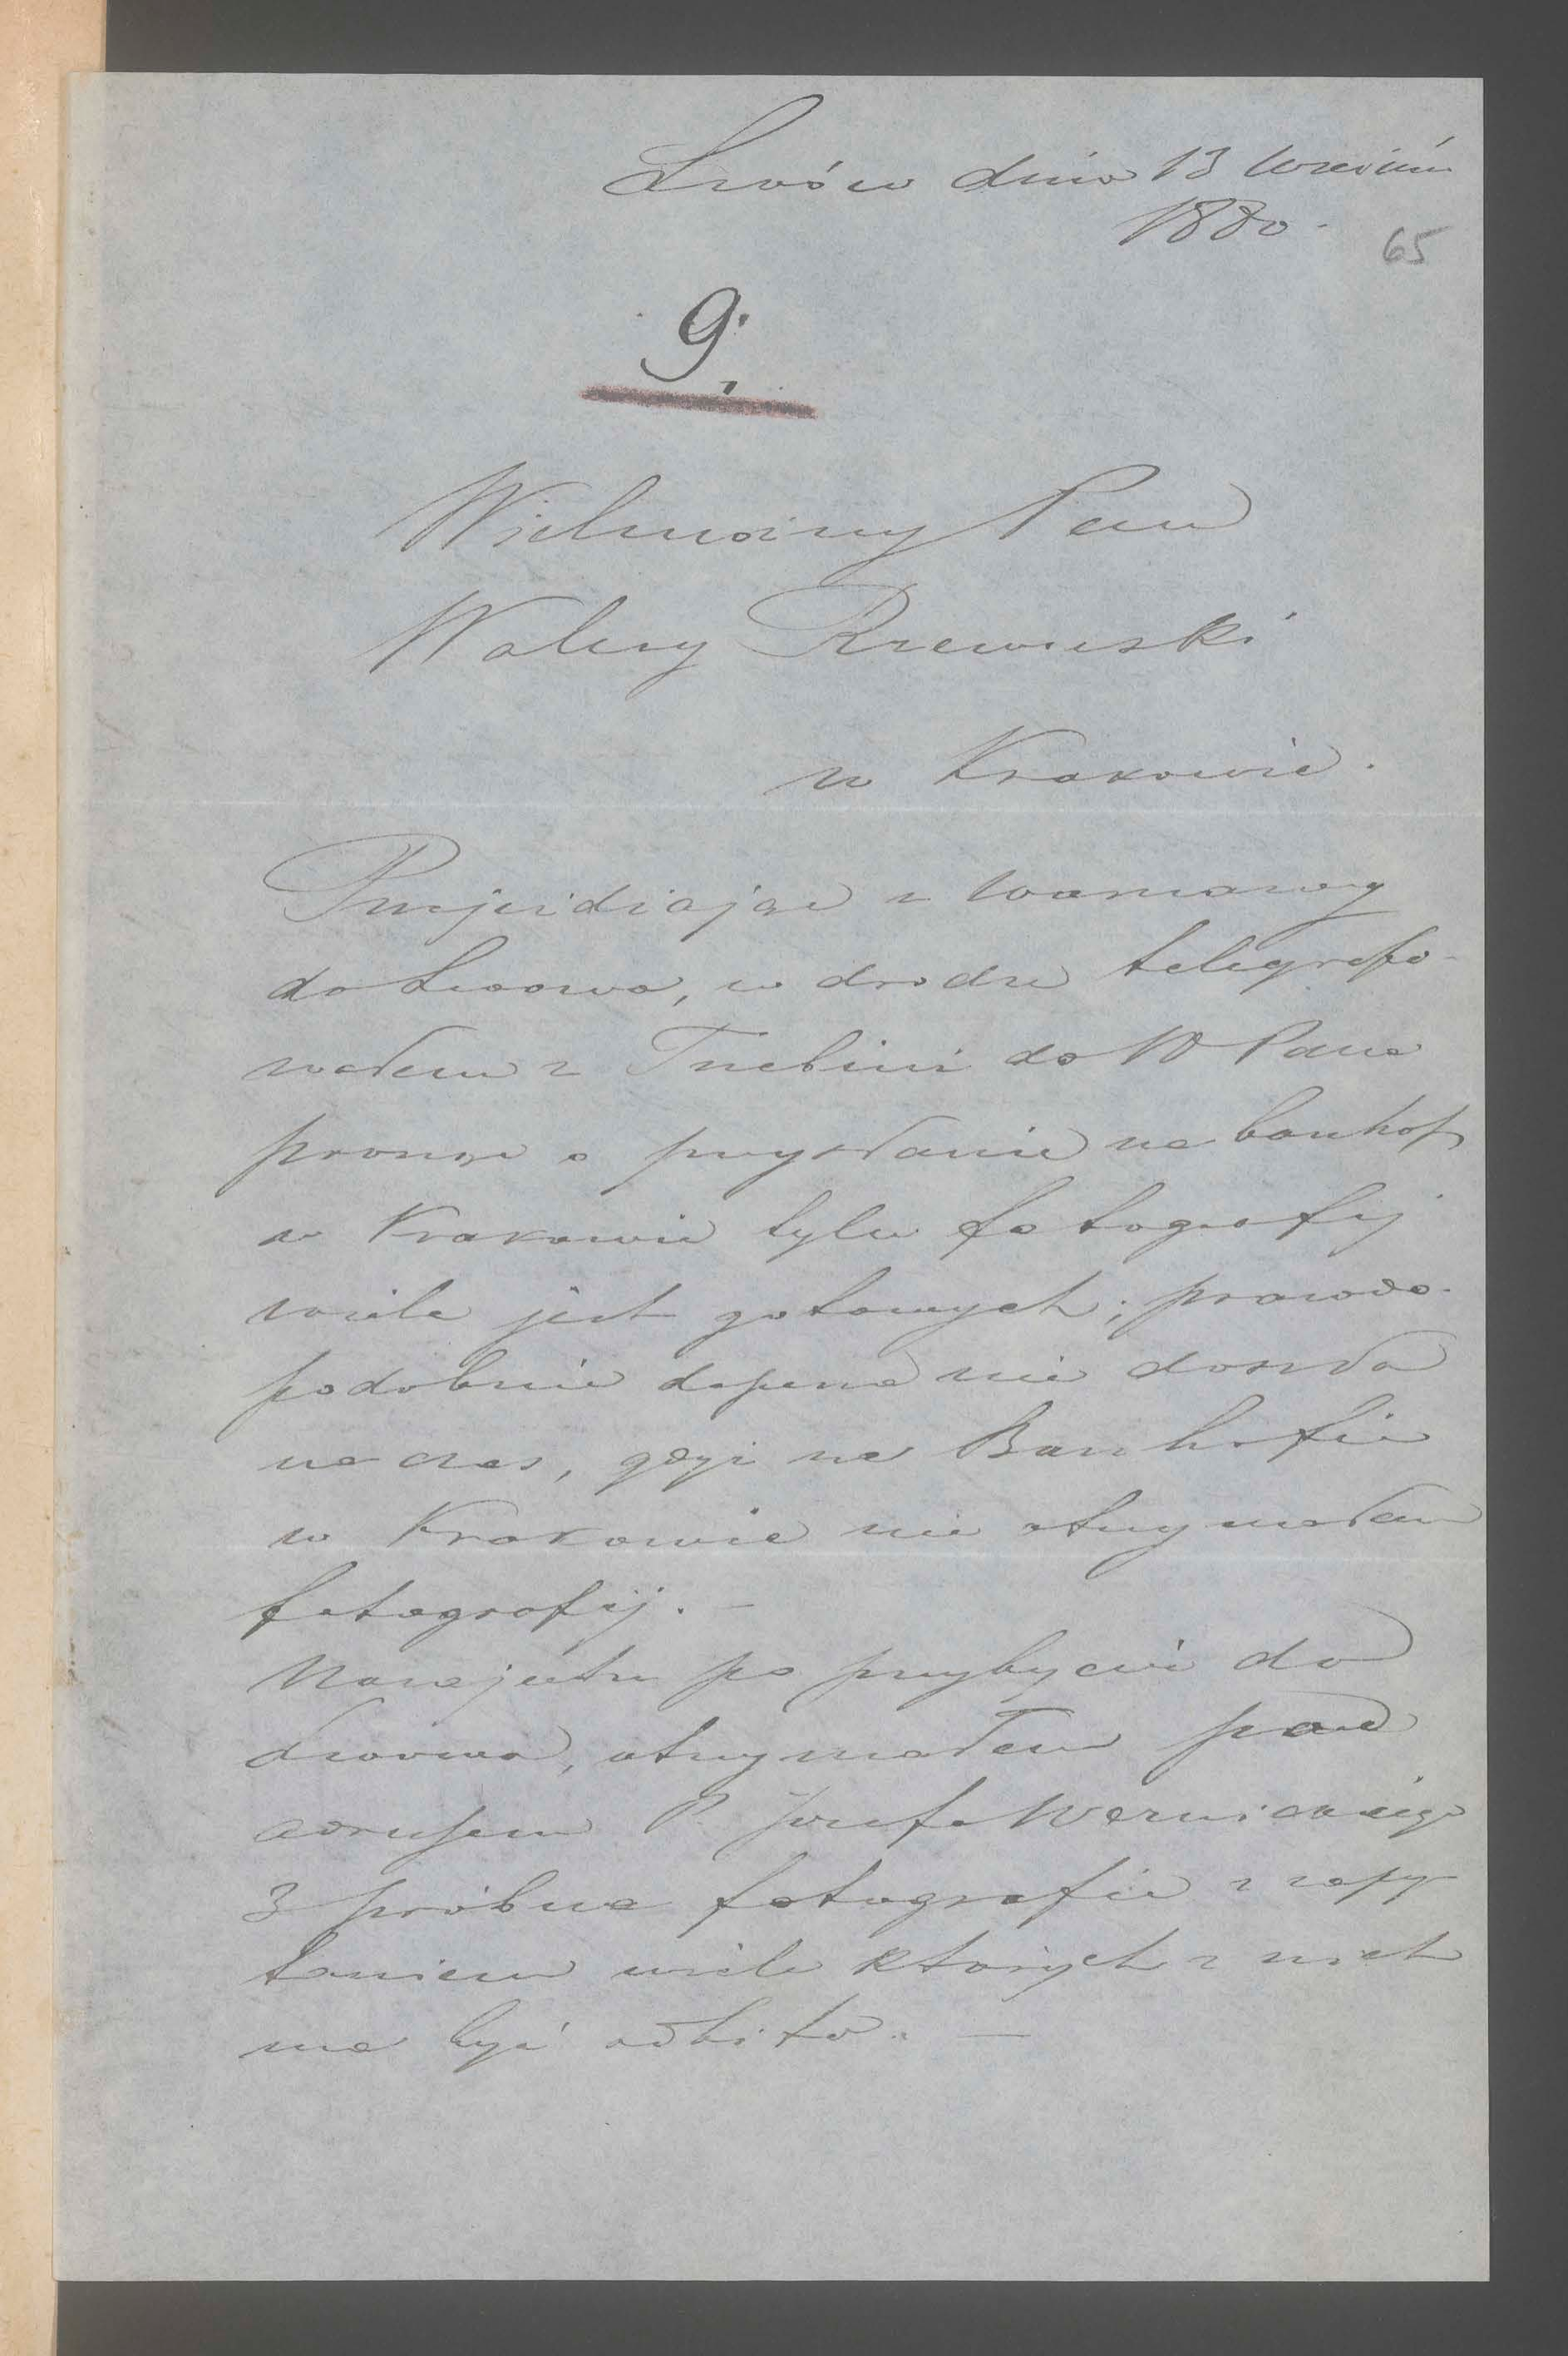 Lwów dnia 13 Września
1880.
65
9.
Wielmożny Pan
Walery Rzewuski
w Krakowie.
Przejeżdżając z Warszawy
do Lwowa, w drodze telegrafo-
wałem z Trzebini do W Pana
prosząc o przysłanie na banhof
w Krakowie tyle fotografij
wiele jest gotowych; prawdo-
podobnie depesza nie doszła
na czas, gdyż na Banhofie
w Krakowie nie otrzymałem
fotografij. —
Nazajutrz po przybyciu do
Lwowa, otrzymałem pod
adresem P. Józefa Wernickiego
3 próbne fotografie z zapy-
taniem wiele których z nich
ma być odbito. —